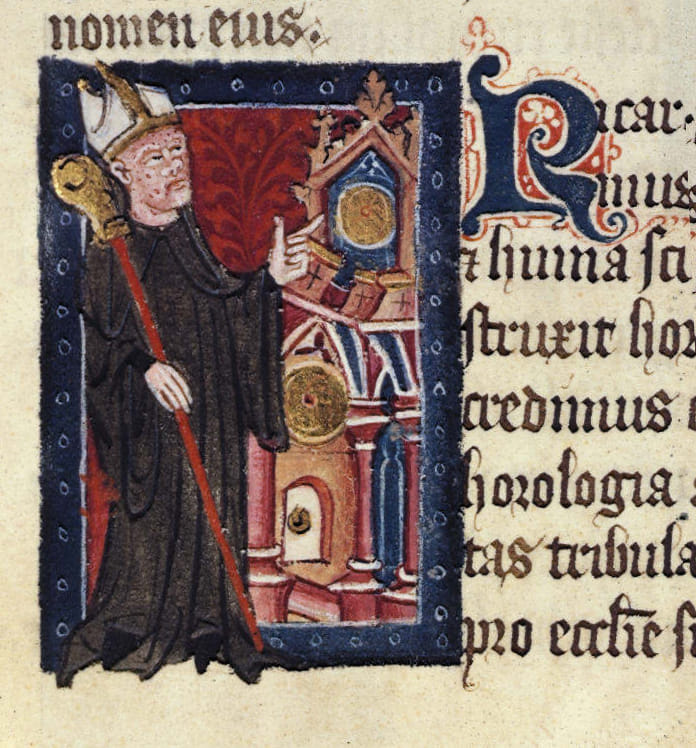 nomen eius.
Ricar
imus
⁊ huma sci
struxit hor
credimus
horologia
tas tribula
pro ecclīe si